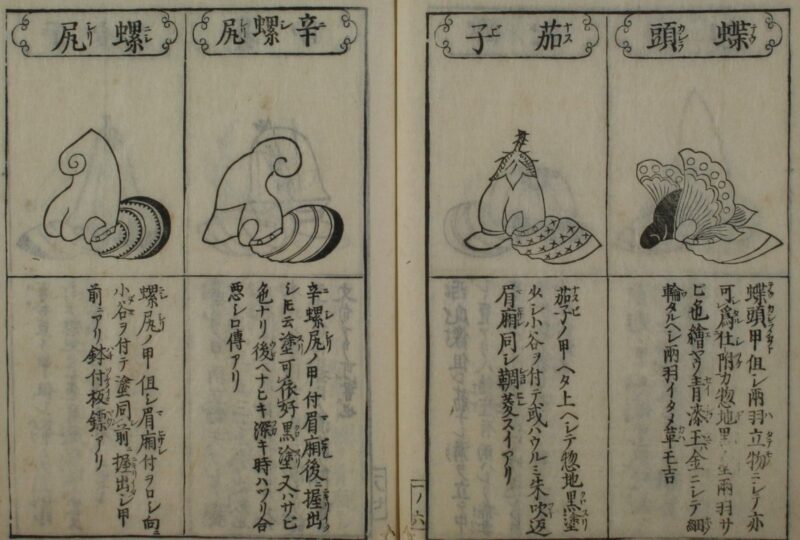 蝶頭
蝶頭ノ甲但シ兩羽立物ニシノ亦
可爲仕附カ惣地黒塗兩羽サ
ビ也繪ヤウ青漆王金ニシテ細
輪タルヘシ兩羽イタメ草モ吉
茄子
茄子ノ甲ヘタ上ヘシテ惣地黒塗
少シ小谷ヲ付テ或ハウルミ朱吹返
眉廂同シ菱スイアリ
ノ六
辛螺尻
辛螺尻ノ甲付眉廂後ニ握出
シ𪜈云塗可依好黒塗又ハサヒ
色ナリ後ヘナヒキ深キ時ハツリ合
悪シ口傳アリ
螺尻
螺尻ノ甲但シ眉廂付ヲロシ向ニ
小谷ヲ付テ塗同前ニ握出シ甲
前ニアリ鉢付板アリ